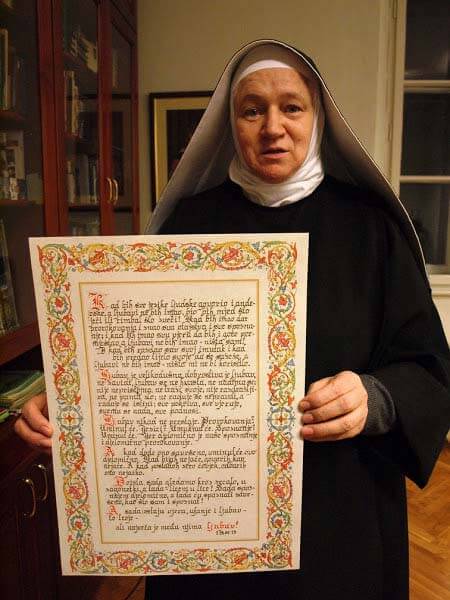 Kad bih sve jezike ljudske govorio i anđe-
oske, a ljubavi ne bih imao, bio bih mjed što
ječi ili cimbal što zveči. Kad bih imao dar
prorokovanja i znao sva otajstva i sve spozna-
nje; i kad bih imao svu vjeru da bih i gore pre-
mještao, a ljubavi ne bih imao - ništa sam!
I kad bih razdao sav svoj imutak i kad
bih predao tijelo svoje da se sažeže, a
ljubavi ne bih imao - ništa mi ne bi koristilo.
Ljubav je velikodušna, dobrostiva je ljubav,
ne zavidi, ljubav se ne hvasta, ne nadima se;
nije nepristojna, ne traži svoje, nije razdražlji-
va, ne pamti zlo; ne raduje se nepravdi, a
raduje se istini; sve pokriva, sve vjeruje,
svemu se nada, sve podnosi.
Ljubav nikad ne prestaje. Prorokovanja?
Uminut će. Jezici? Umuknut će. Spoznanje?
Uminut će. Jer djelomično je naše spoznanje
i djelomično prorokovanje.
A kad dođe ono savršeno, uminut će ovo
djelomično. Kad bijah nejače, govorih kao
nejače. A kad postadoh zreo čovjek, odbacih
ono nejačko.
Doista, sada gledamo kroz zrcalo, u
zagonetki, a tada - licem u lice! Sada spo-
znajem djelomično, a tada ću spoznati savr-
šeno, kao što sam i spoznat!
A sada: ostaju vjera, ufanje i ljubav -
to troje -
ali najveća je među njima ljubav!
1 Kor 13